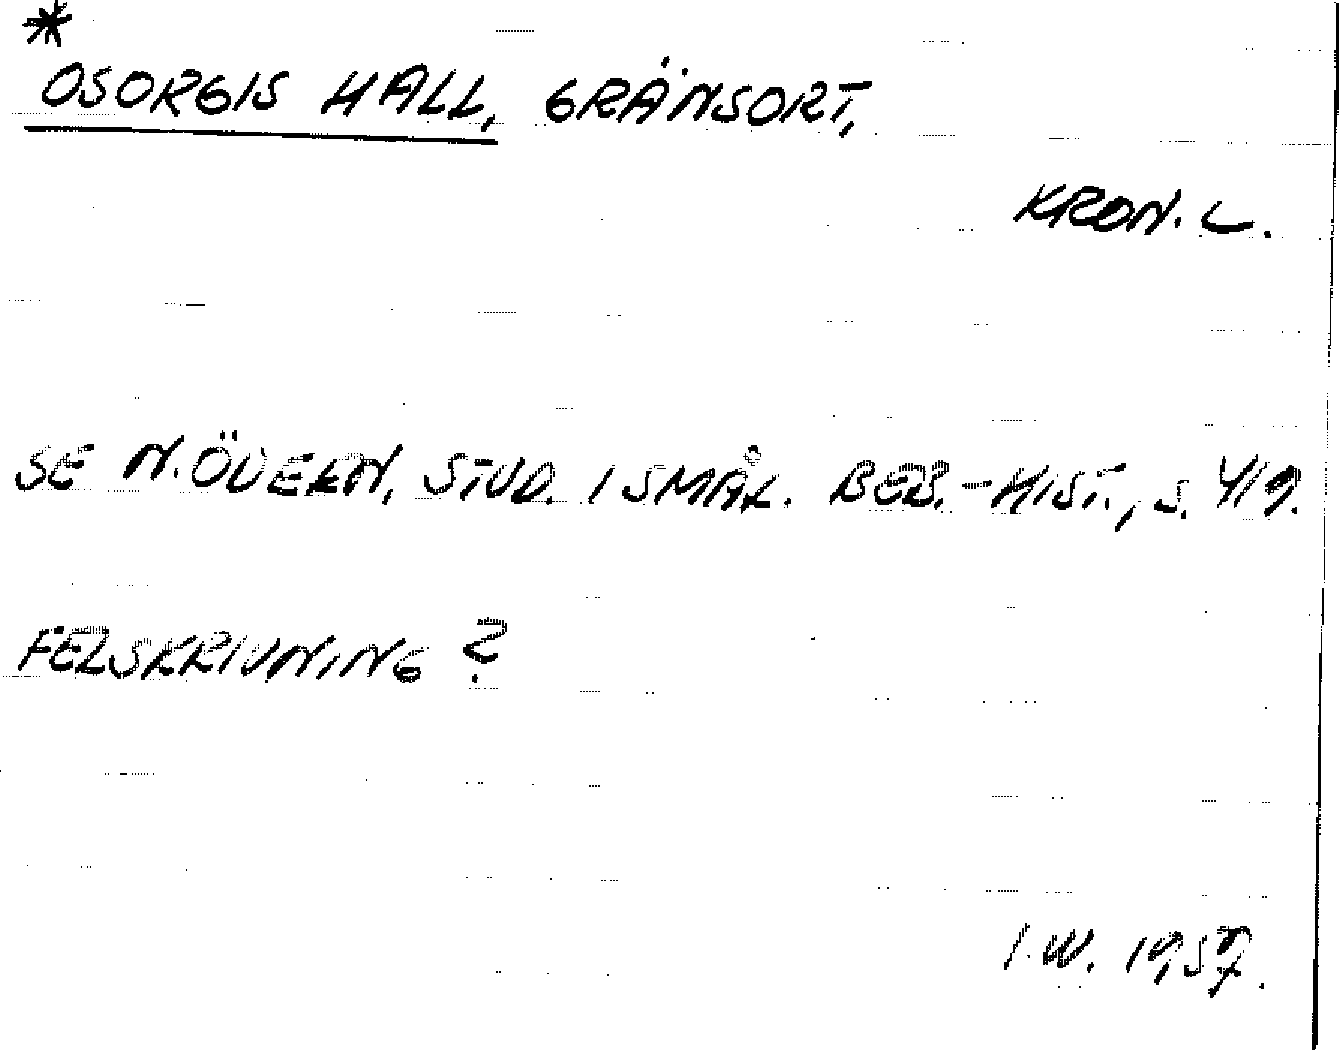 *
OSORGIS HALL, GRÄNSORT,
KRON. L.
SE N. ÖDEEN, STUD. I SMÅL. BEB.-HIST., S. 419.
FELSKRIVNING?
I.W. 1957.